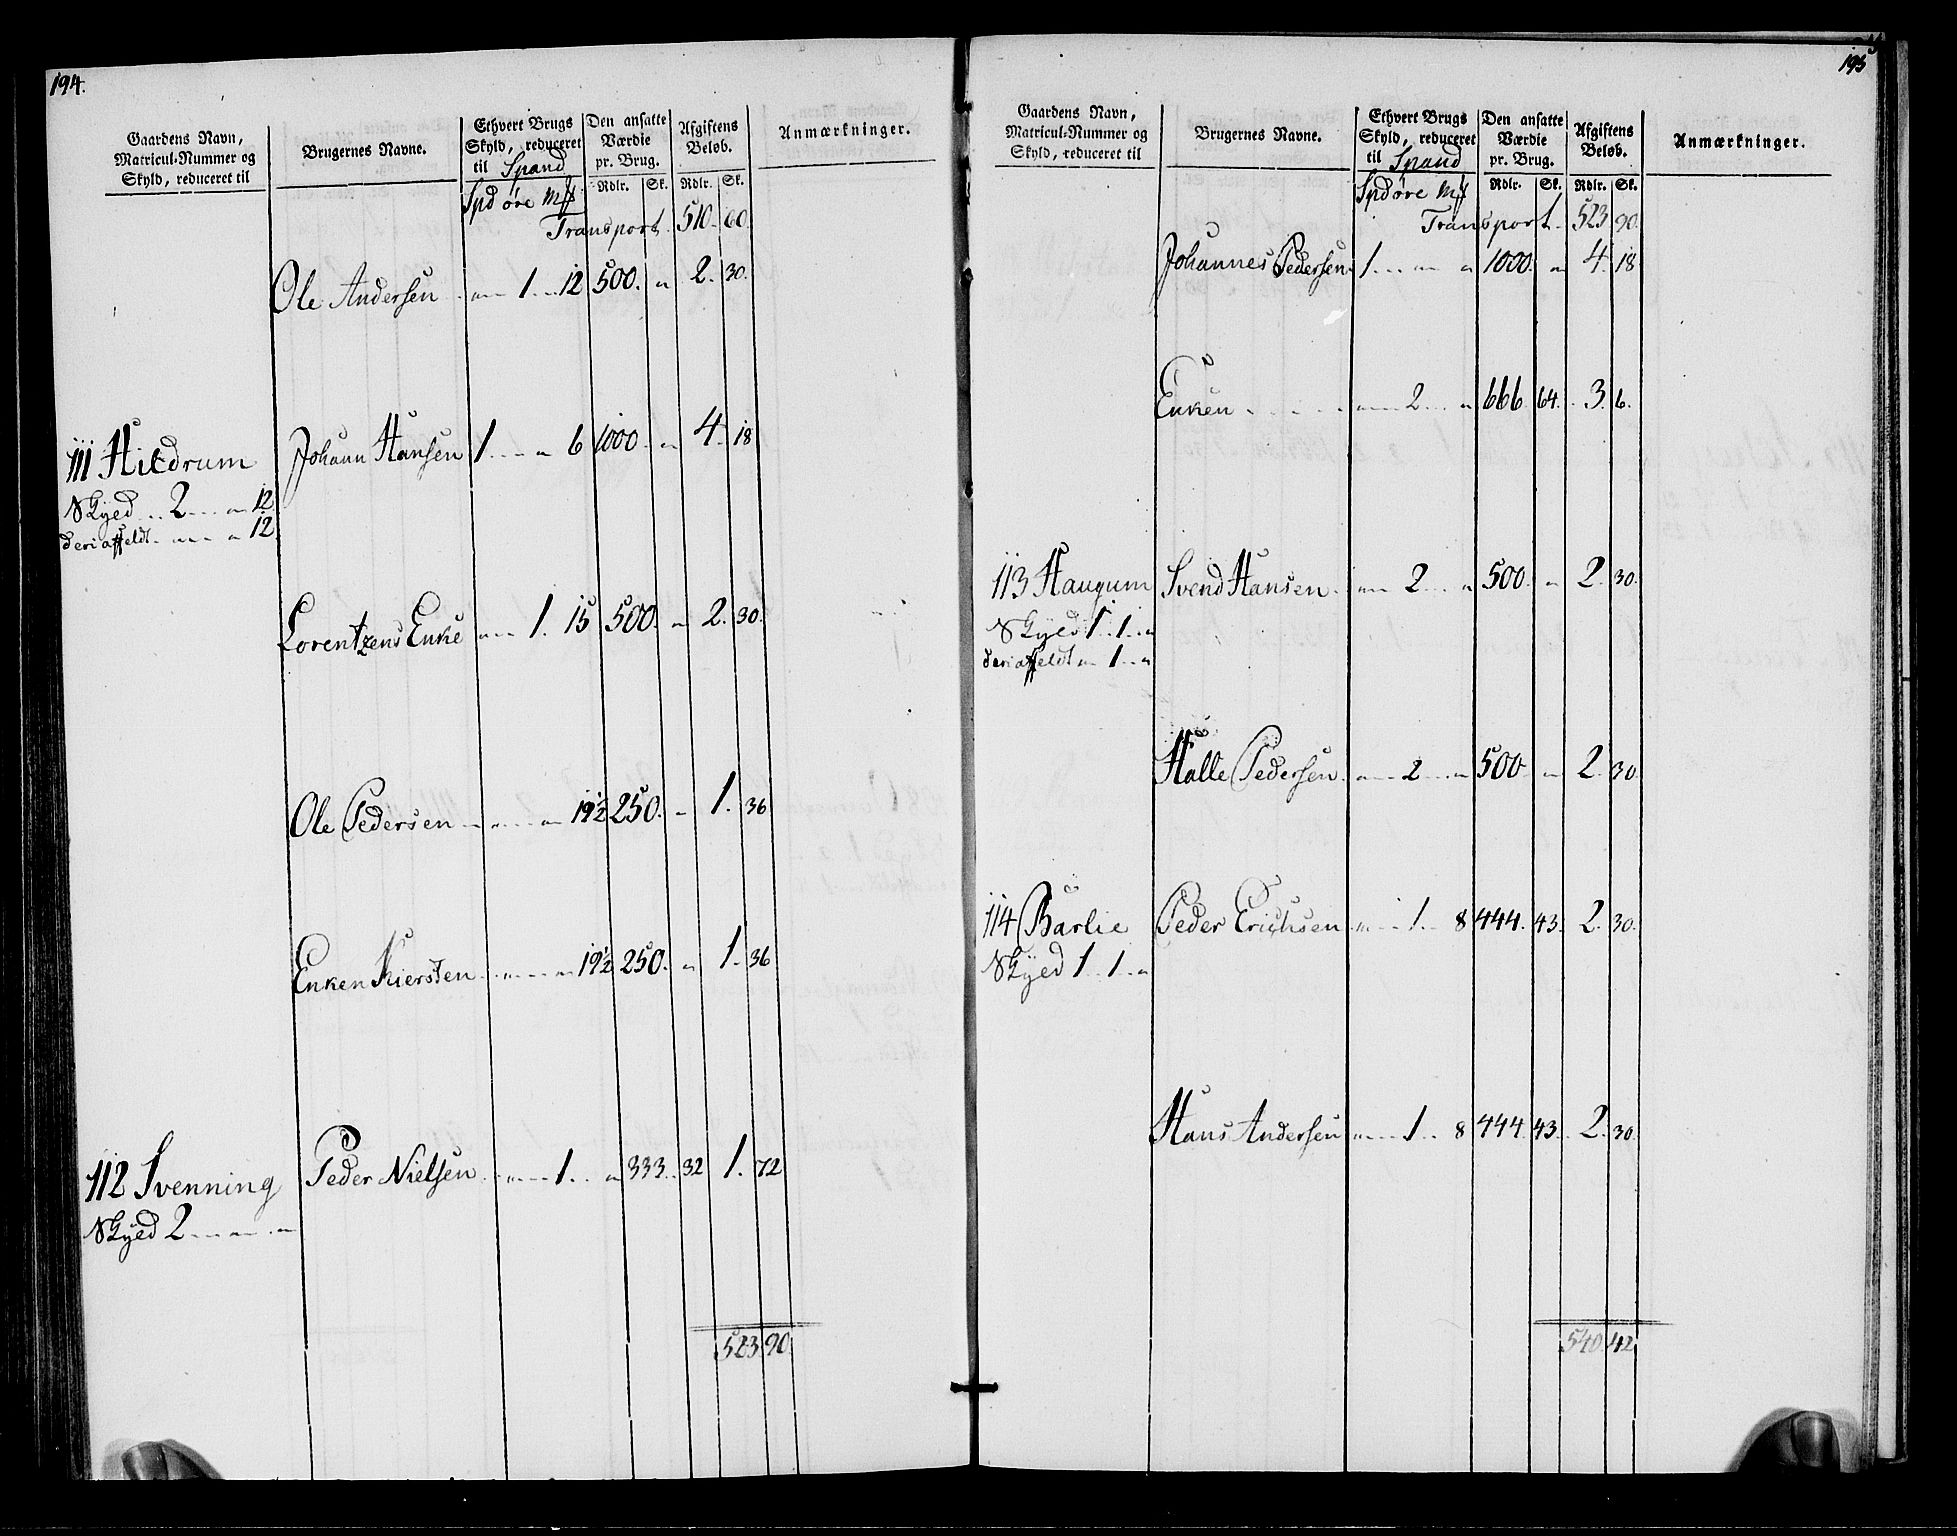 194.
Gaardens Navn, Matricul-Nummer og Skyld, reduceret til
Brugernes Navne.
Ethvert Brugs Skyld, reduceret til Spand
Den ansatte Værdie pr. Brug.
Afgiftens Beløb.
Anmærkninger.
Rdlr. Sk. Rdlr. Sk.
Spd øre Mß
Transport. 510. 60.
Ole Andersen 1 12 500. 2. 30.
111 Hildrum Johann Hansen 1 6 1000. 4. 18
Skyld 2 12
deri affeldt. 12
Lorentzens Enke 1. 15 500. 2. 30.
Ole Pedersen 19½ 250. 1. 36
Enken Kiersten 19½ 250. 1. 36
112 Svenning Peder Nielsen 1 333. 32 1. 72
Skyld 2
523. 90
195
Gaardens Navn, Matricul-Nummer og Skyld, reduceret til
Brugernes Navne.
Ethvert Brugs Skyld, reduceret til Spand
Den ansatte Værdie pr. Brug.
Afgiftens Beløb.
Anmærkninger.
Rdlr. Sk. Rdlr. Sk.
Spd øre Mß
Transport. 523 90.
Johannes Pedersen 1 1000. 4. 18
Enken 2 666 64. 3. 6.
113 Haugum Svend Hansen 2 500. 2. 30.
Skyld 1 1
deri affeldt 1
Halle Pedersen 2 500 2. 30.
114 Barlie Peder Erichsen 1 8 444. 43. 2. 30.
Skyld 1 1
Hans Andersen 1 8 444 43. 2. 30.
540. 42